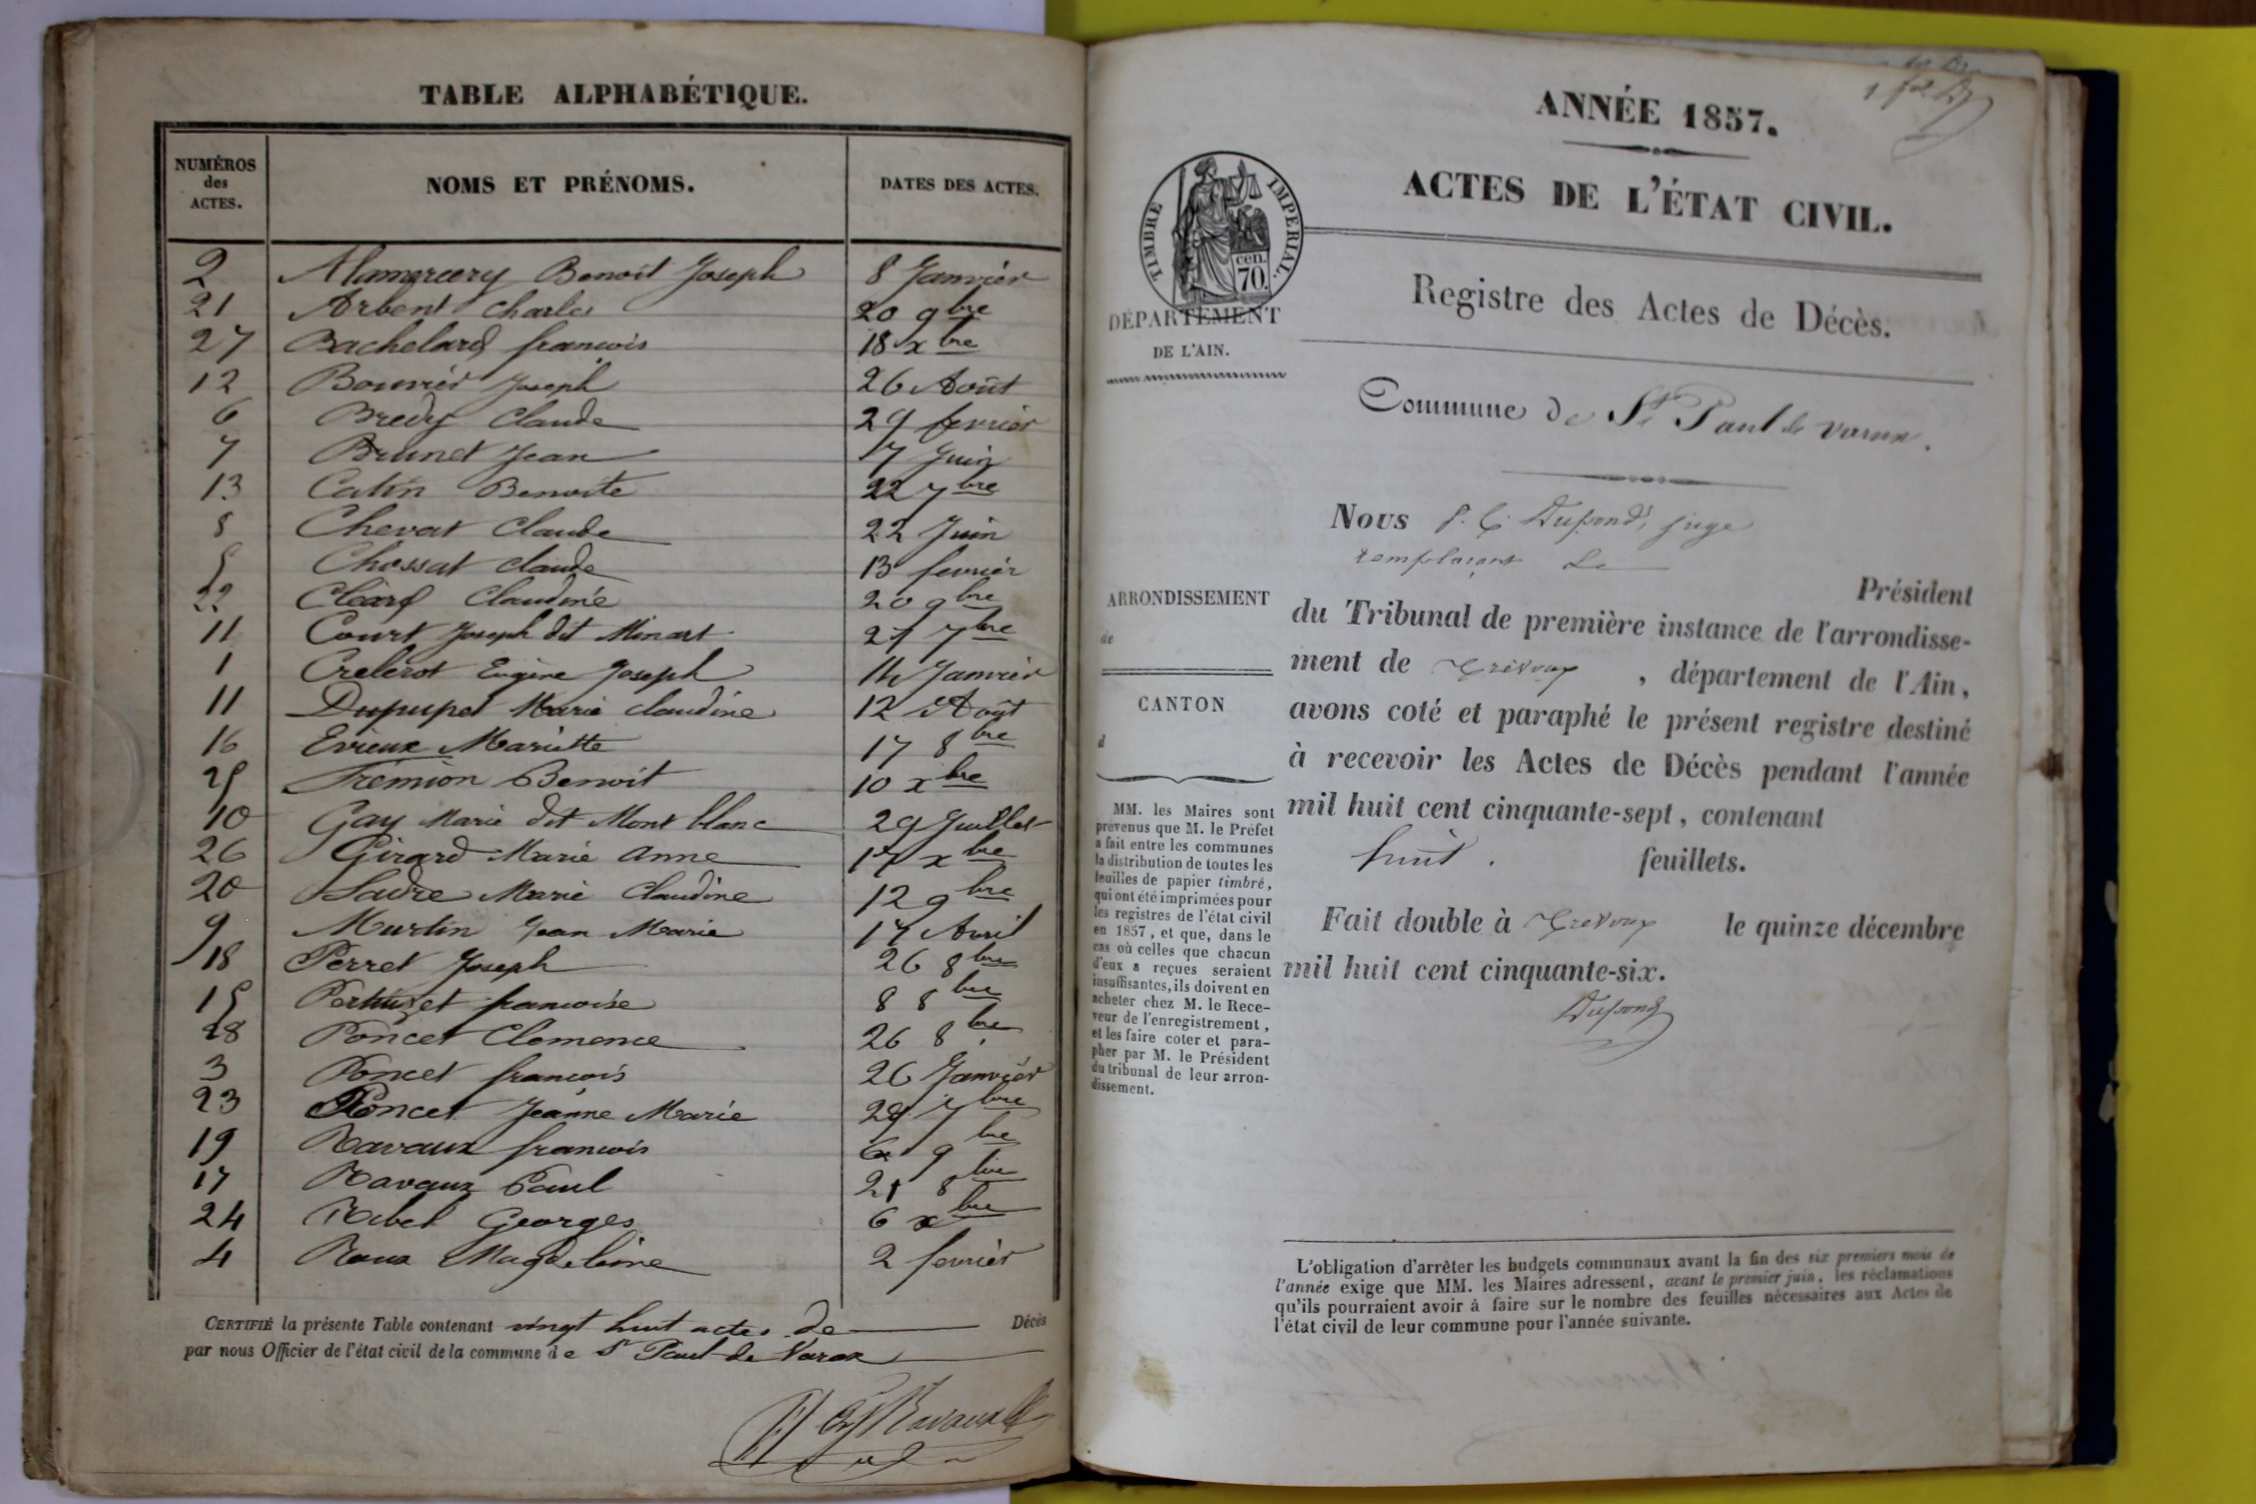 TABLE ALPHABÉTIQUE.
NUMÉROS des ACTES. NOMS ET PRÉNOMS. DATES DES ACTES.
2 Benoit Joseph 8 Janvier
21 Arbent Charles 20 9bre
27 Bachelard francois 18 xbre
12 Bouvier Joseph 26 Août
6 Bredy Claude 29 fevrier
7 Brunet Jean 17 Juin
13 Catin Benoite 22 7bre
8 Chevat Claude 22 Juin
5 Chossat Claude 13 fevrier
22 Cléard Claudine 20 9bre
11 Court Joseph dit Minart 27 7bre
1 Crelerot Eugène Joseph 14 Janvier
11 Dupupet Marie Claudine 12 Août
16 Evieux Mariette 17 8bre
25 Frémion Benoit 10 xbre
10 Gay Marie dit Mont blanc 29 Juillet
26 Girard Marie Anne 17 xbre
20 Marie Claudine 12 9bre
9 Murtin Jean Marie 17 Avril
18 Perret Joseph 26 8bre
15 Perthuzet francoise 8 8bre
28 Poncet Clemence 26 8bre
3 Poncet francois 26 Janvier
23 Poncet Jeanne Marie 7bre
19 Ravaux francois 6 9bre
17 Ravaux Paul 21 8bre
24 Georges 6 xbre
4 Roux Magdeleine 2 fevrier
CERTIFIÉ la présente Table contenant vingt huit actes de Décès
par nous Officier de l'état civil de la commune de St Paul de Varax
Ravaux
ANNÉE 1857.
ACTES DE L'ÉTAT CIVIL.
TIMBRE IMPERIAL.
cen.
70.
DÉPARTEMENT
DE L'AIN.
Registre des Actes de Décès.
Commune de St Paul de varax.
Nous P. C. Dupond, juge
remplaçant Le
Président
du Tribunal de première instance de l'arrondisse-
ment de Trévoux, département de l'Ain,
avons coté et paraphé le présent registre destiné
à recevoir les Actes de Décès pendant l'année
mil huit cent cinquante-sept, contenant
huit. feuillets.
Fait double à Trévoux le quinze décembre
mil huit cent cinquante-six.
Dupond
ARRONDISSEMENT
de
CANTON
d
MM. les Maires sont
prévenus que M. le Préfet
a fait entre les communes
la distribution de toutes les
feuilles de papier timbré,
qui ont été imprimées pour
les registres de l'état civil
en 1857, et que, dans le
cas où celles que chacun
d'eux a reçues seraient
insuffisantes, ils doivent en
acheter chez M. le Rece-
veur de l'enregistrement,
et les faire coter et para-
pher par M. le Président
du tribunal de leur arron-
dissement.
L'obligation d'arrêter les budgets communaux avant la fin des six premiers mois de
l'année exige que MM. les Maires adressent, avant le premier juin, les réclamations
qu'ils pourraient avoir à faire sur le nombre des feuilles nécessaires aux Actes de
l'état civil de leur commune pour l'année suivante.